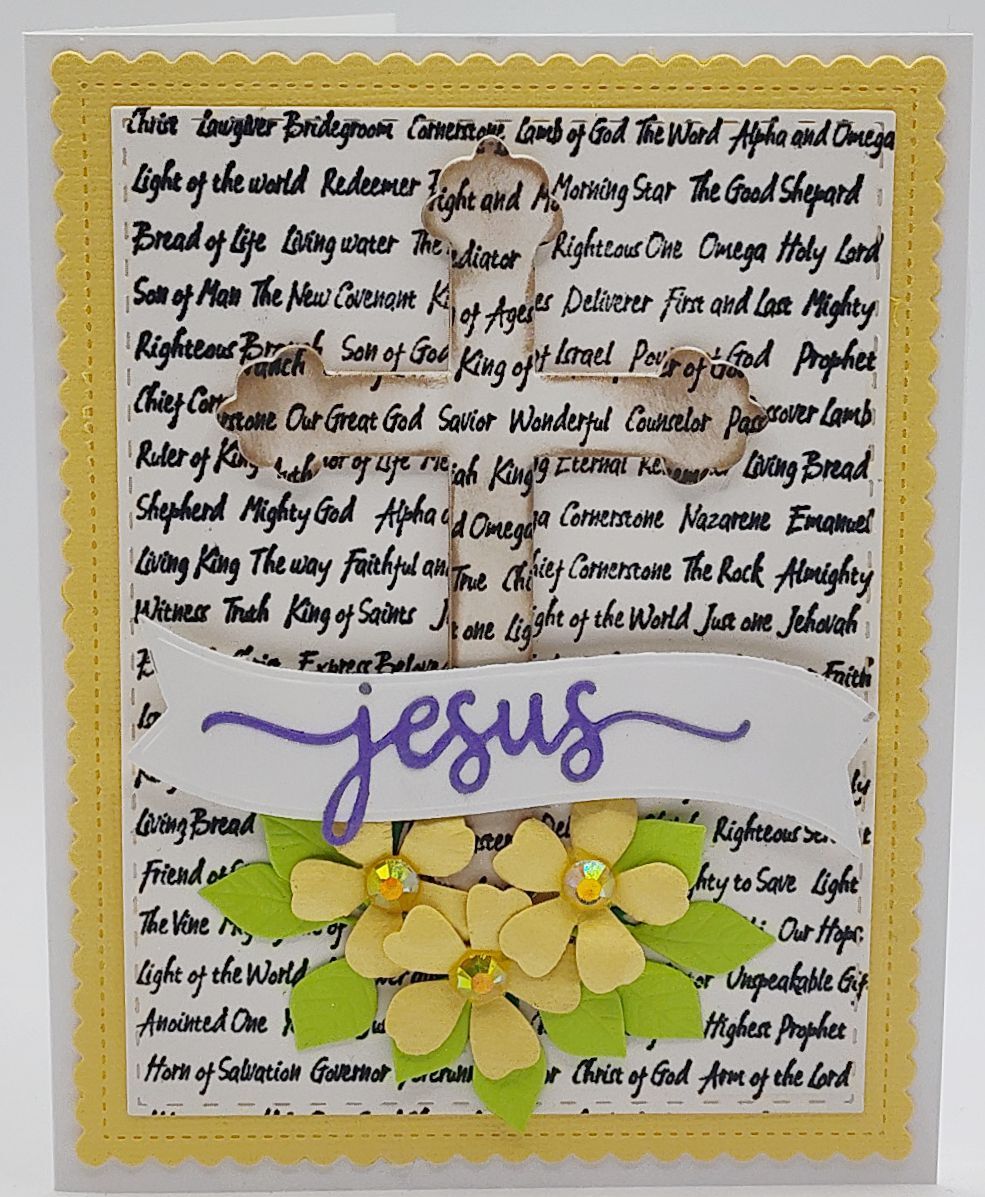 Christ Lawgiver Bridegroom Cornerstone Lamb of God The Word Alpha and Omega
Light of the world Redeemer ight and Morning Star The Good Shepard
Bread of Life Living water The ediator Righteous One Omega Holy Lord
Son of Man The New Covenant K of Ages Deliverer First and Last Mighty
Righteous Branch Son of God King of Israel Power of God Prophet
Chief Cornerstone Our Great God Savior Wonderful Counselor Passover Lamb
Ruler of King uthor of Life Me iah King Eternal Redeemer Living Bread
Shepherd Mighty God Alpha and Omega Cornerstone Nazarene Emanuel
Living King The way Faithful an True Chief Cornerstone The Rock Almighty
Witness Truth King of Saints J t one Light of the World Just one Jehovah
Christ Express Belove Faith
jesus
Living Bread Righteous
Friend of hty to Save Light
The Vine of Our Hope
Light of the World or Unspeakable Gif
Anointed One Highest Prophet
Horn of Salvation Governor Christ of God Arm of the Lord